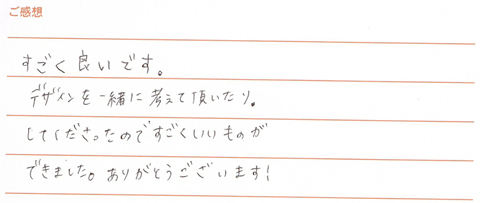 ご感想
すごく良いです。
デザインを一緒に考えて頂いたり。
してくださったのですごくいいものが
できました。ありがとうございます!